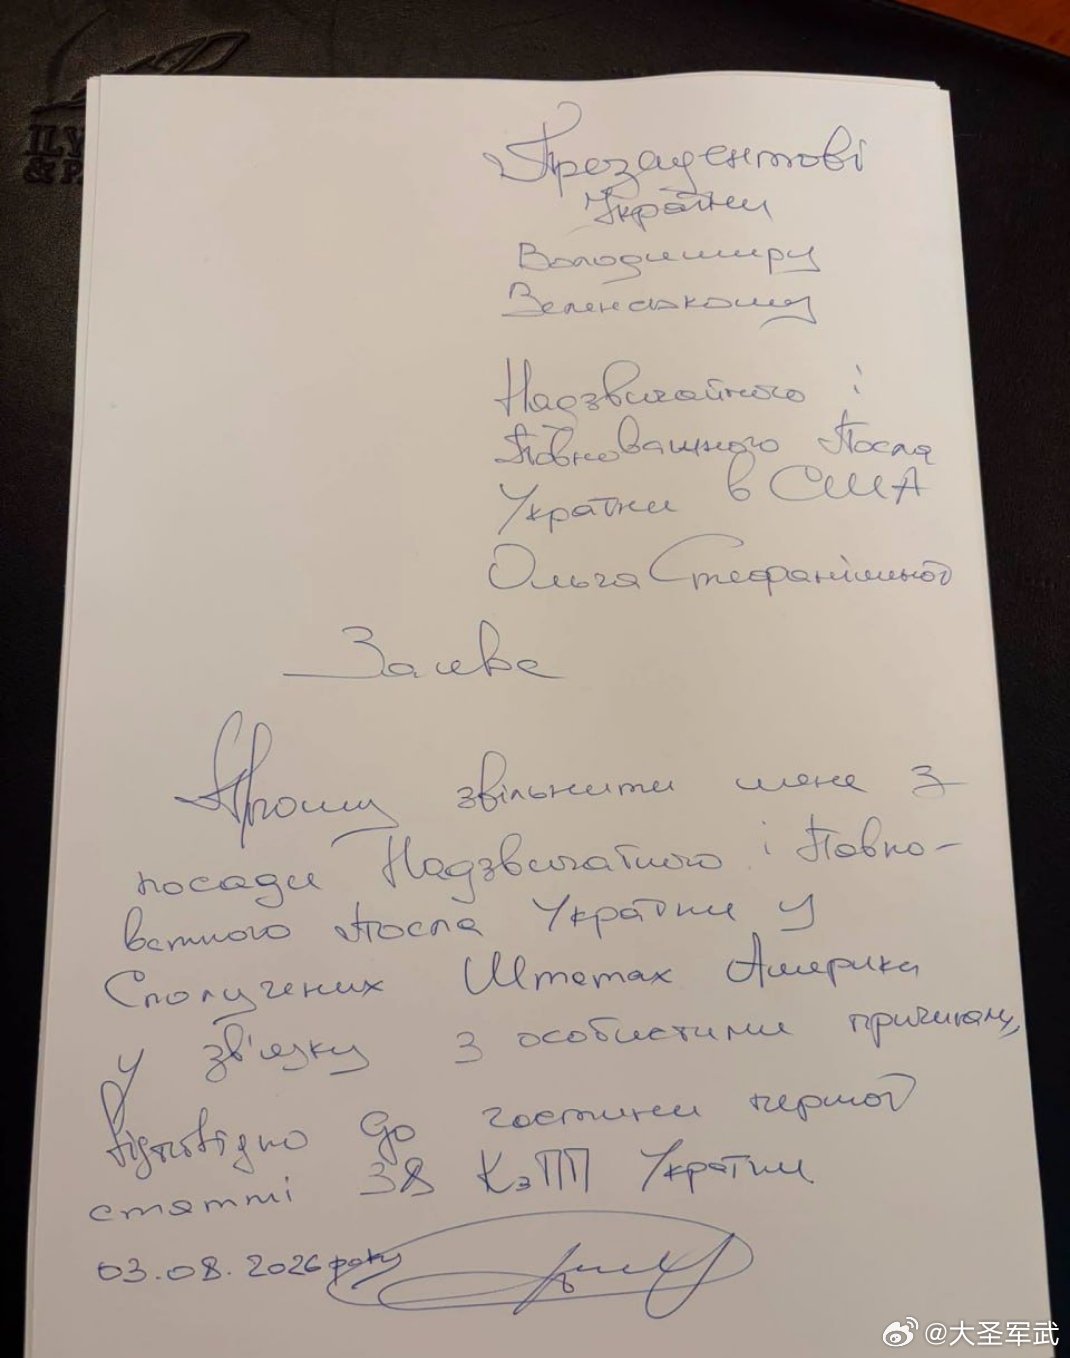 Президентові
України
Володимиру
Зеленському
Надзвичайного і
Повноважного Посла
України в США
Ольга Стефанішиної
Заява
Прошу звільнити мене з
посади Надзвичайного і Повно-
важного Посла України у
Сполучених Штатах Америки
у зв'язку з особистими причинами,
відповідно до частини першої
статті 38 КзПП України
03.08.2026 року
@大圣军武